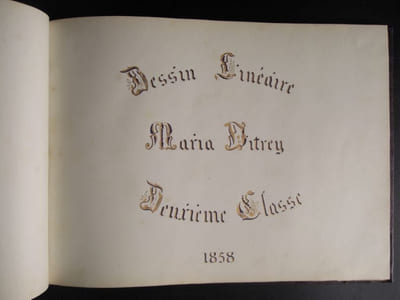 Dessin Linéaire
Maria Vitrey
Deuxième Classe
1858